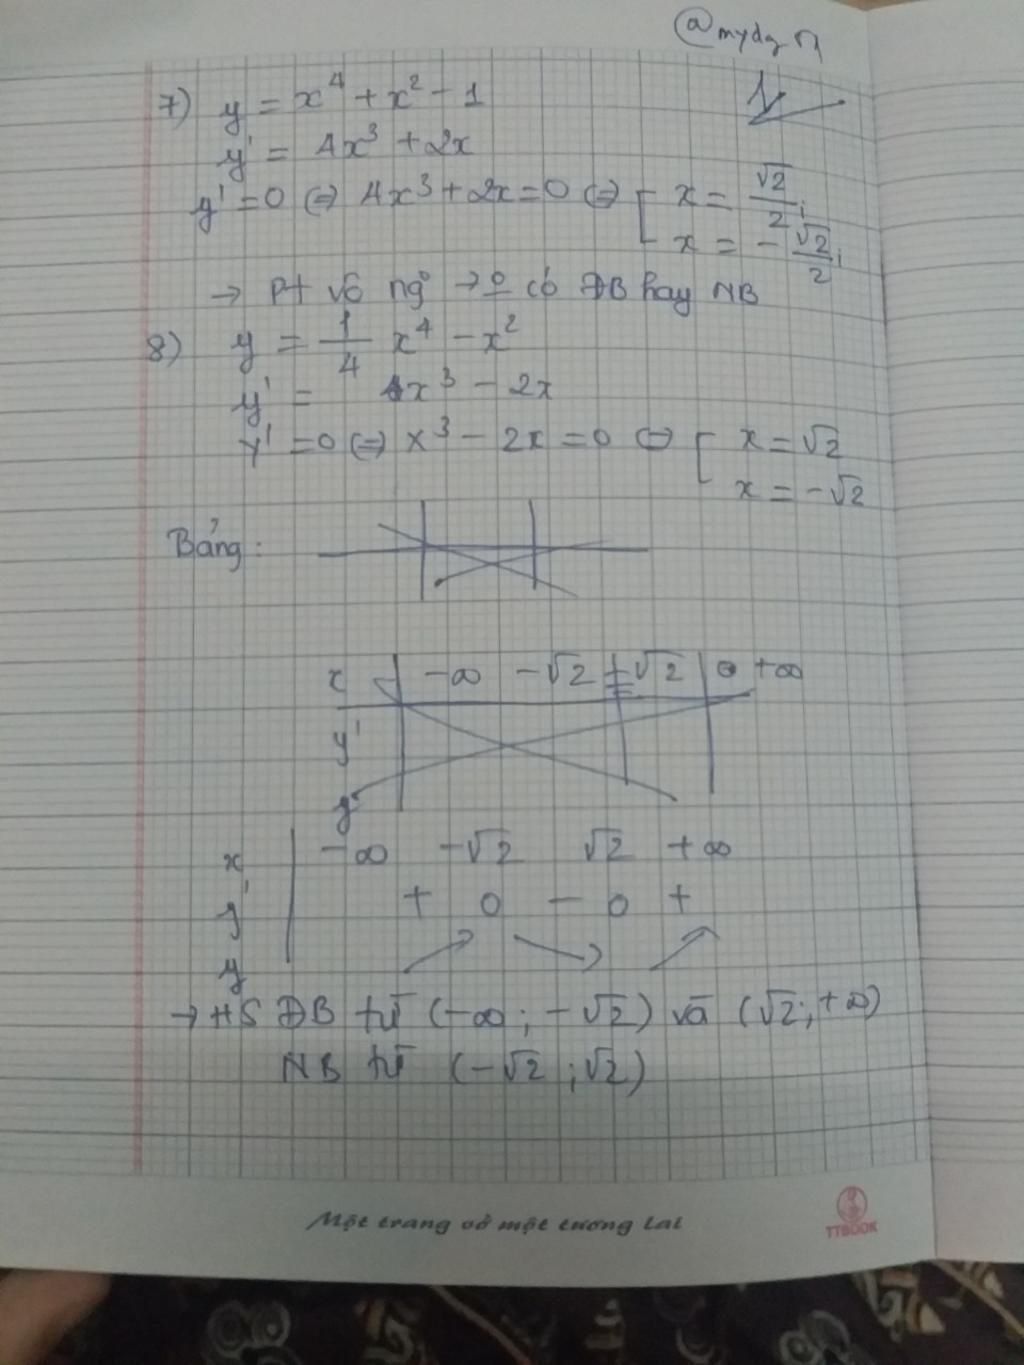 @mydg
7) y = x⁴ + x² - 1
y' = 4x³ + 2x
y' = 0 ⇔ 4x³ + 2x = 0 ⇔ [ x = √2/2 i
x = -√2/2 i
→ pt vô ng° → 0 có ĐB hay NB
8) y = 1/4 x⁴ - x²
y' = x³ - 2x
y' = 0 ⇔ x³ - 2x = 0 ⇔ [ x = √2
x = -√2
Bảng:
x -∞ -√2 √2 0 +∞
y'
y
x -∞ -√2 √2 +∞
y' + 0 - 0 +
y
→ HS ĐB từ (-∞; -√2) và (√2; +∞)
NB từ (-√2; √2)
Một trang vở một tương lai
TTBOOK